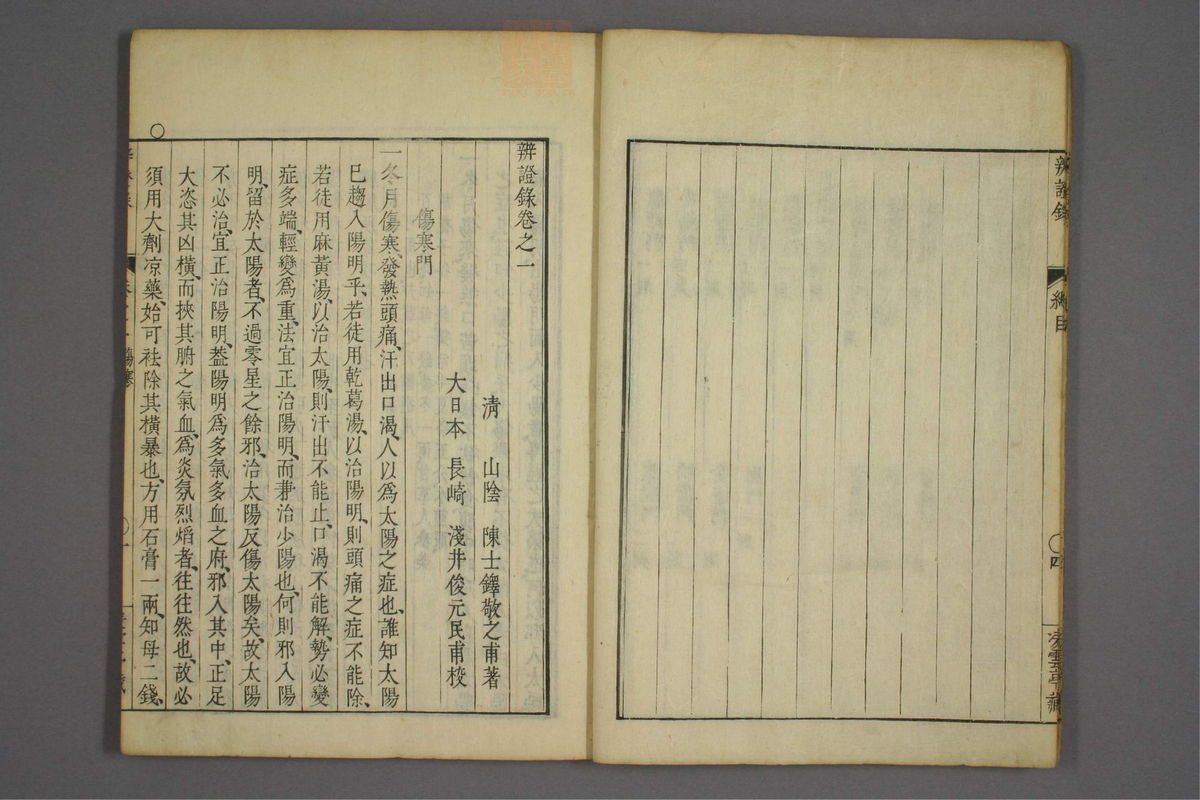 辨證錄
總目
〇四
凌雲亭藏
辨證錄卷之一
清　山陰　陳士鐸敬之甫著
大日本　長崎　淺井俊元民甫校
傷寒門
一冬月傷寒、發熱頭痛、汗出口渴、人以爲太陽之症也、誰知太陽
已趨入陽明乎、若徒用乾葛湯、以治陽明、則頭痛之症不能除、
若徒用麻黃湯、以治太陽、則汗出不能止、口渴不能解、勢必變
症多端、輕變爲重、法宜正治陽明、而兼治少陽也、何則邪入陽
明、留於太陽者、不過零星之餘邪、治太陽反傷太陽矣、故太陽
不必治、宜正治陽明、葢陽明爲多氣多血之府、邪入其中、正足
大恣其凶橫、而挾其腑之氣血、爲炎氛烈熖者、往往然也、故必
須用大劑凉藥、始可祛除其橫暴也、方用石膏一兩、知母二錢、
傷寒
〇一